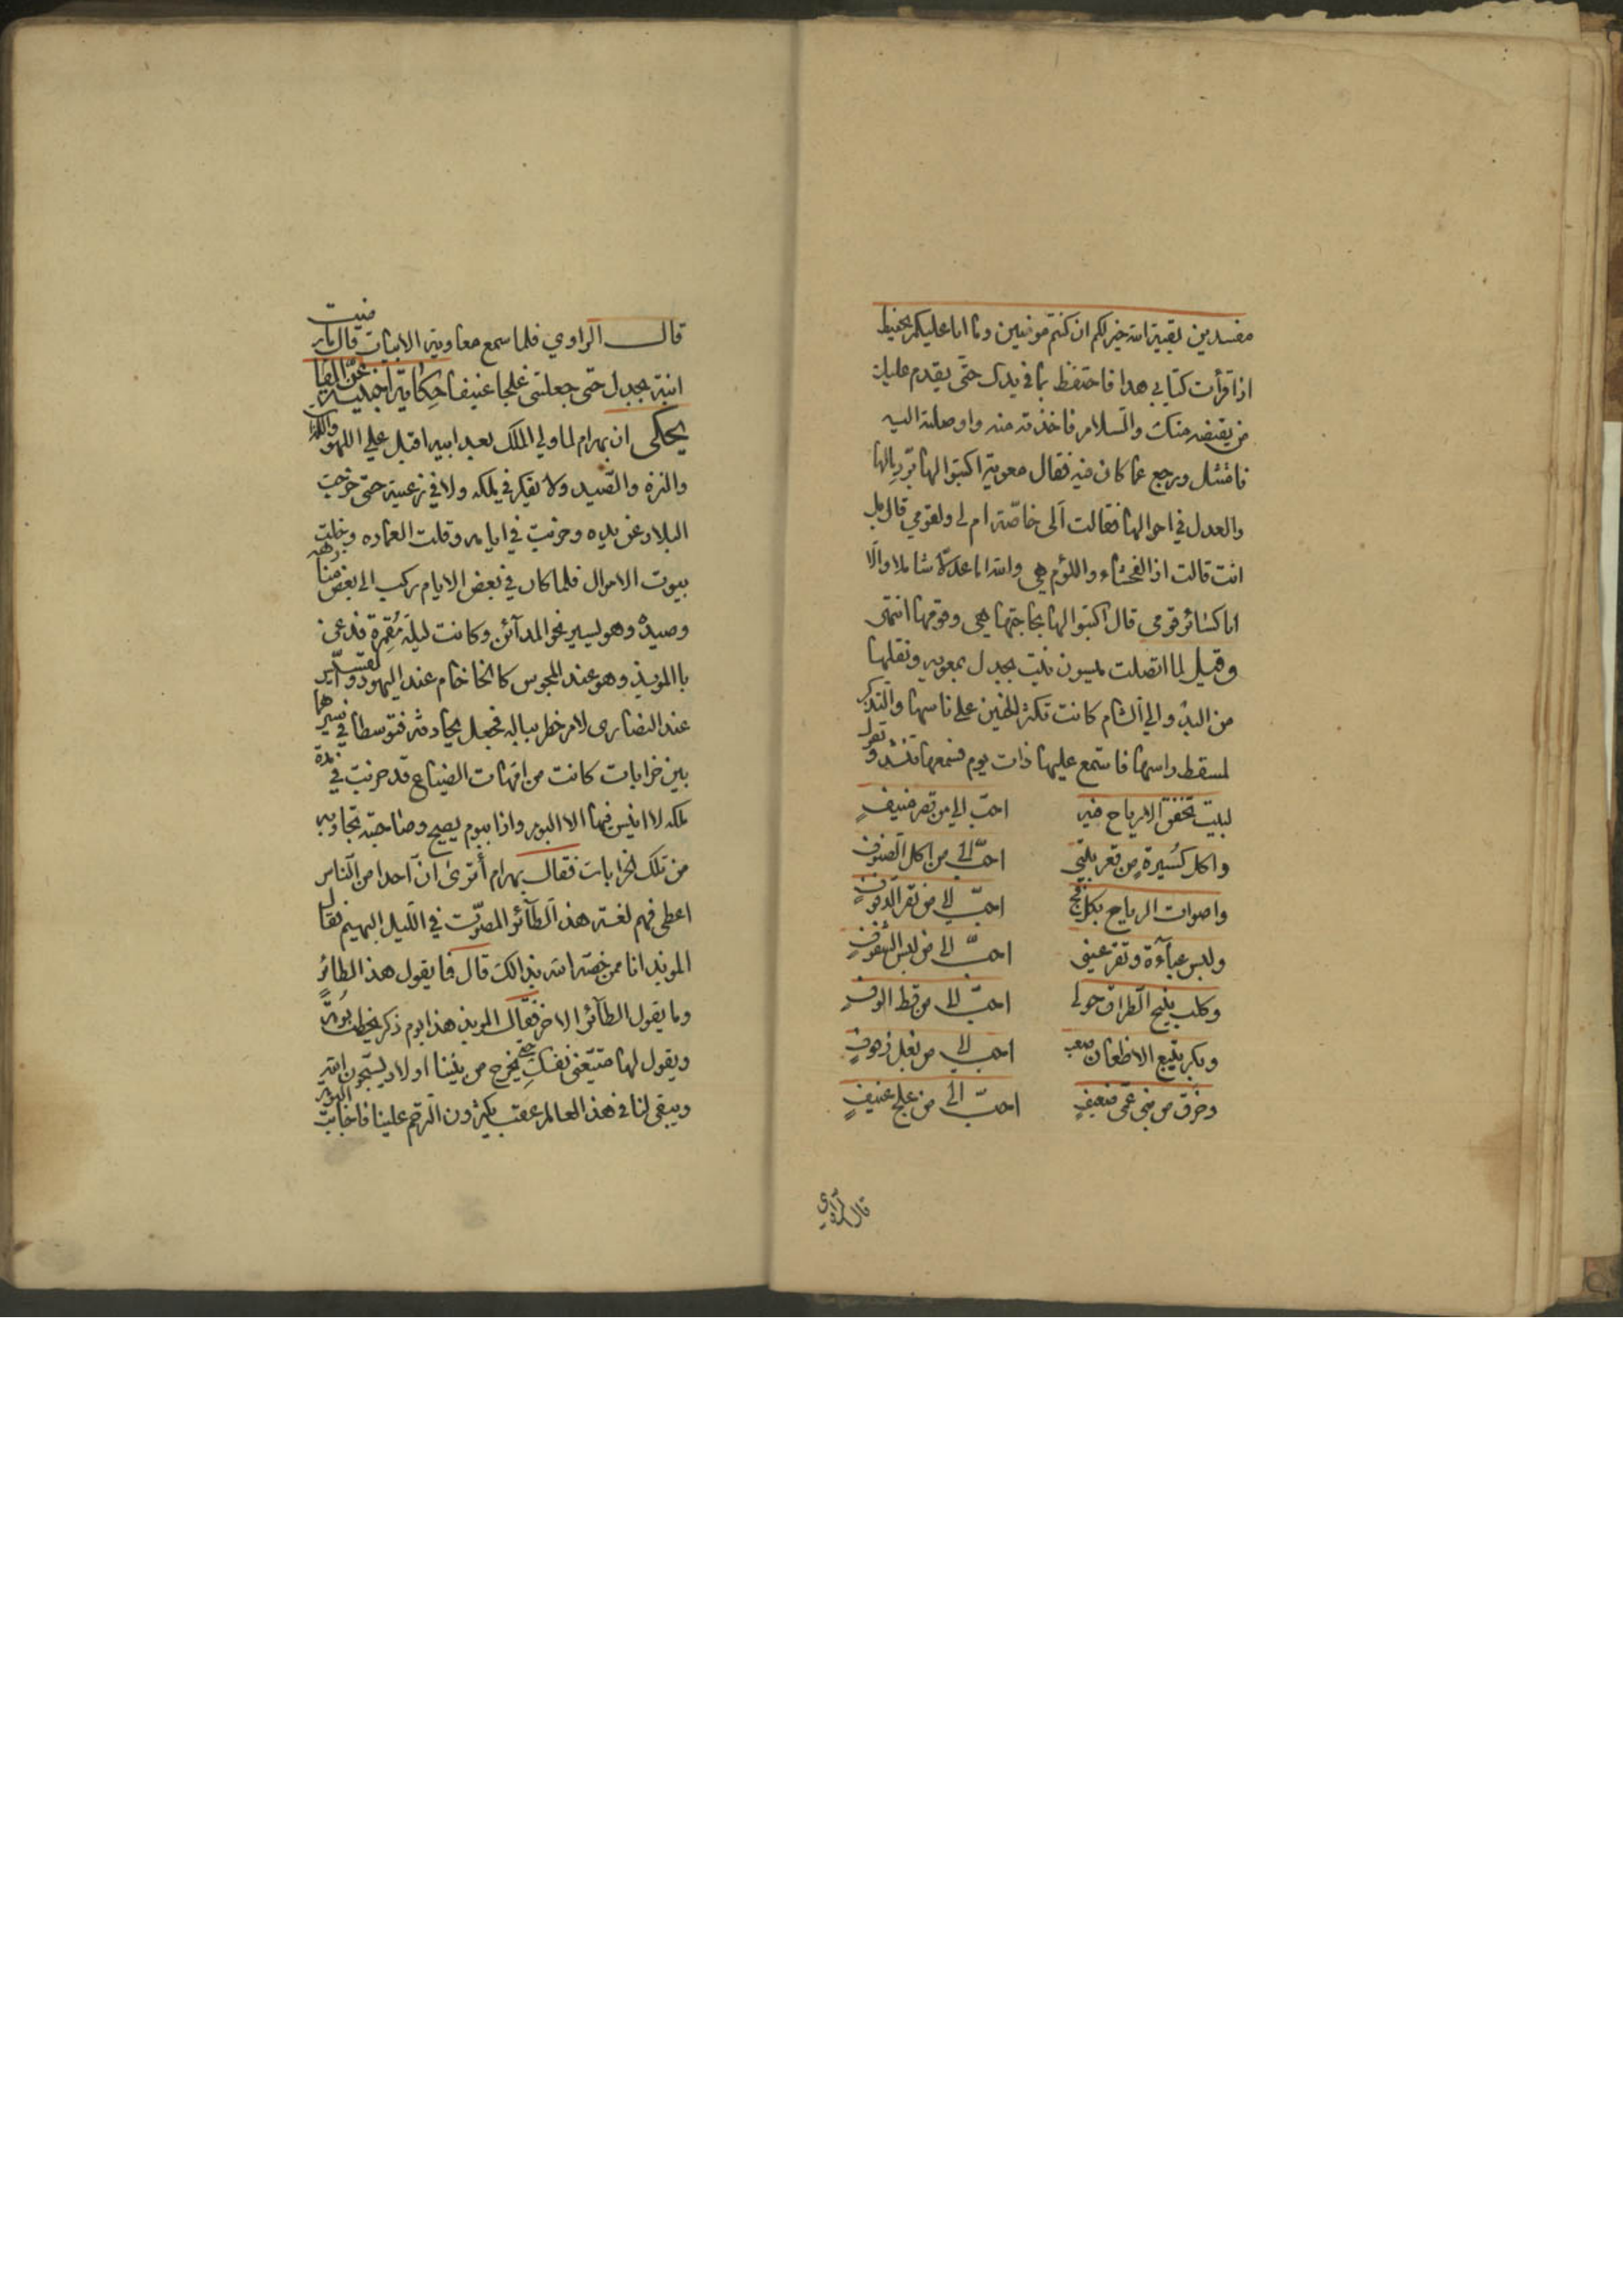 مفسدين بقية الله خير لكم ان كنتم مؤمنين وما انا عليكم بحفيظ
اذا قرأت كتابي هذا فاحتفظ بما في يدك حتى يقدم عليك
من يقبضه منك والسلام فاخذته منه واوصلته اليه
فامتثل ورجع عما كان فيه فقال معوية اكتبوا لها برد مالها
والعدل في احوالها فقالت ألي خاصة ام لي ولقومي قال بل
انت قالت اذا الفحشاء واللؤم هي والله اما عدلا شاملا والا
انا كسائر قومي قال اكتبوا لها بحاجتها هي وقومها انتهى
وقيل لما اتصلت ميسون بنت بجدل بمعويه ونقلها
من البدو الي الشام كانت تكثر الحنين على ناسها والتذكر
لمسقط راسها فاستمع عليها ذات يوم فسمعها تنشد وتقول
لبيت تخفق الارياح فيه احبّ الي من قصر منيفٍ
واكل كسيرةٍ من قعر بيتي احبّ الي من اكل الصنوف
واصوات الرياح بكل فج احبّ الي من نقر الدفوفٍ
ولبس عبآءة وتقر عيني احبّ الي من لبس الشفوفٍ
وكلب ينبح الطراق حولي احبّ الي من قط الوفٍ
وبكر يتبع الاظعان صعب احب الي من بغل زفوفٍ
وخرق من بني عمي ضعيفٍ احبّ الي من علج عنيفٍ
قال الراوي
قال الراوي فلما سمع معاوية الابيات قال ما رضيت
ابنة بجدل حتى جعلتني علجا عنيفا حكاية اجنبية عن المقا
يحكى ان بهرام لما ولي الملك بعد ابيه اقبل علي اللهو واللذات
والنزه والصيد ولا يفكر في ملكه ولا في رعيته حتى خرجت
البلاد عن يده وخربت في ايامه وقلت العماره وخلت
بيوت الاموال فلما كان في بعض الايام ركب الى بعض منازهه
وصيده وهو يسير نحو المدآئن وكانت ليلة مقمرة فدعى
با الموبذ وهو عند المجوس كا الخاخام عند اليهود والقسيس
عند النصارى لامر خطر بباله فجعل يحادثه فتوسطا في سيرهما
بين خرابات كانت من امهات الضياع قد خربت في مدة
ملكه لا انيس فيها الا البوم واذا ببوم يصيح وصاحبته تجاوبه
من تلك الخرابات فقال بهرام أترى ان احدا من الناس
اعطي فهم لغة هذا الطآئر المصوّت في الليل البهيم فقال
الموبذ انا ممن خصه الله بذالك قال فما يقول هذا الطائر
وما يقول الطآئر الاخر فقال الموبذ هذا بوم ذكر يخطب بومة
ويقول لها متعيني نفسك حتى يخرج من بيننا اولاد يسبحون الله
ويبقى لنا في هذا العالم عقب يكثرون الترحم علينا فاجابت البومة